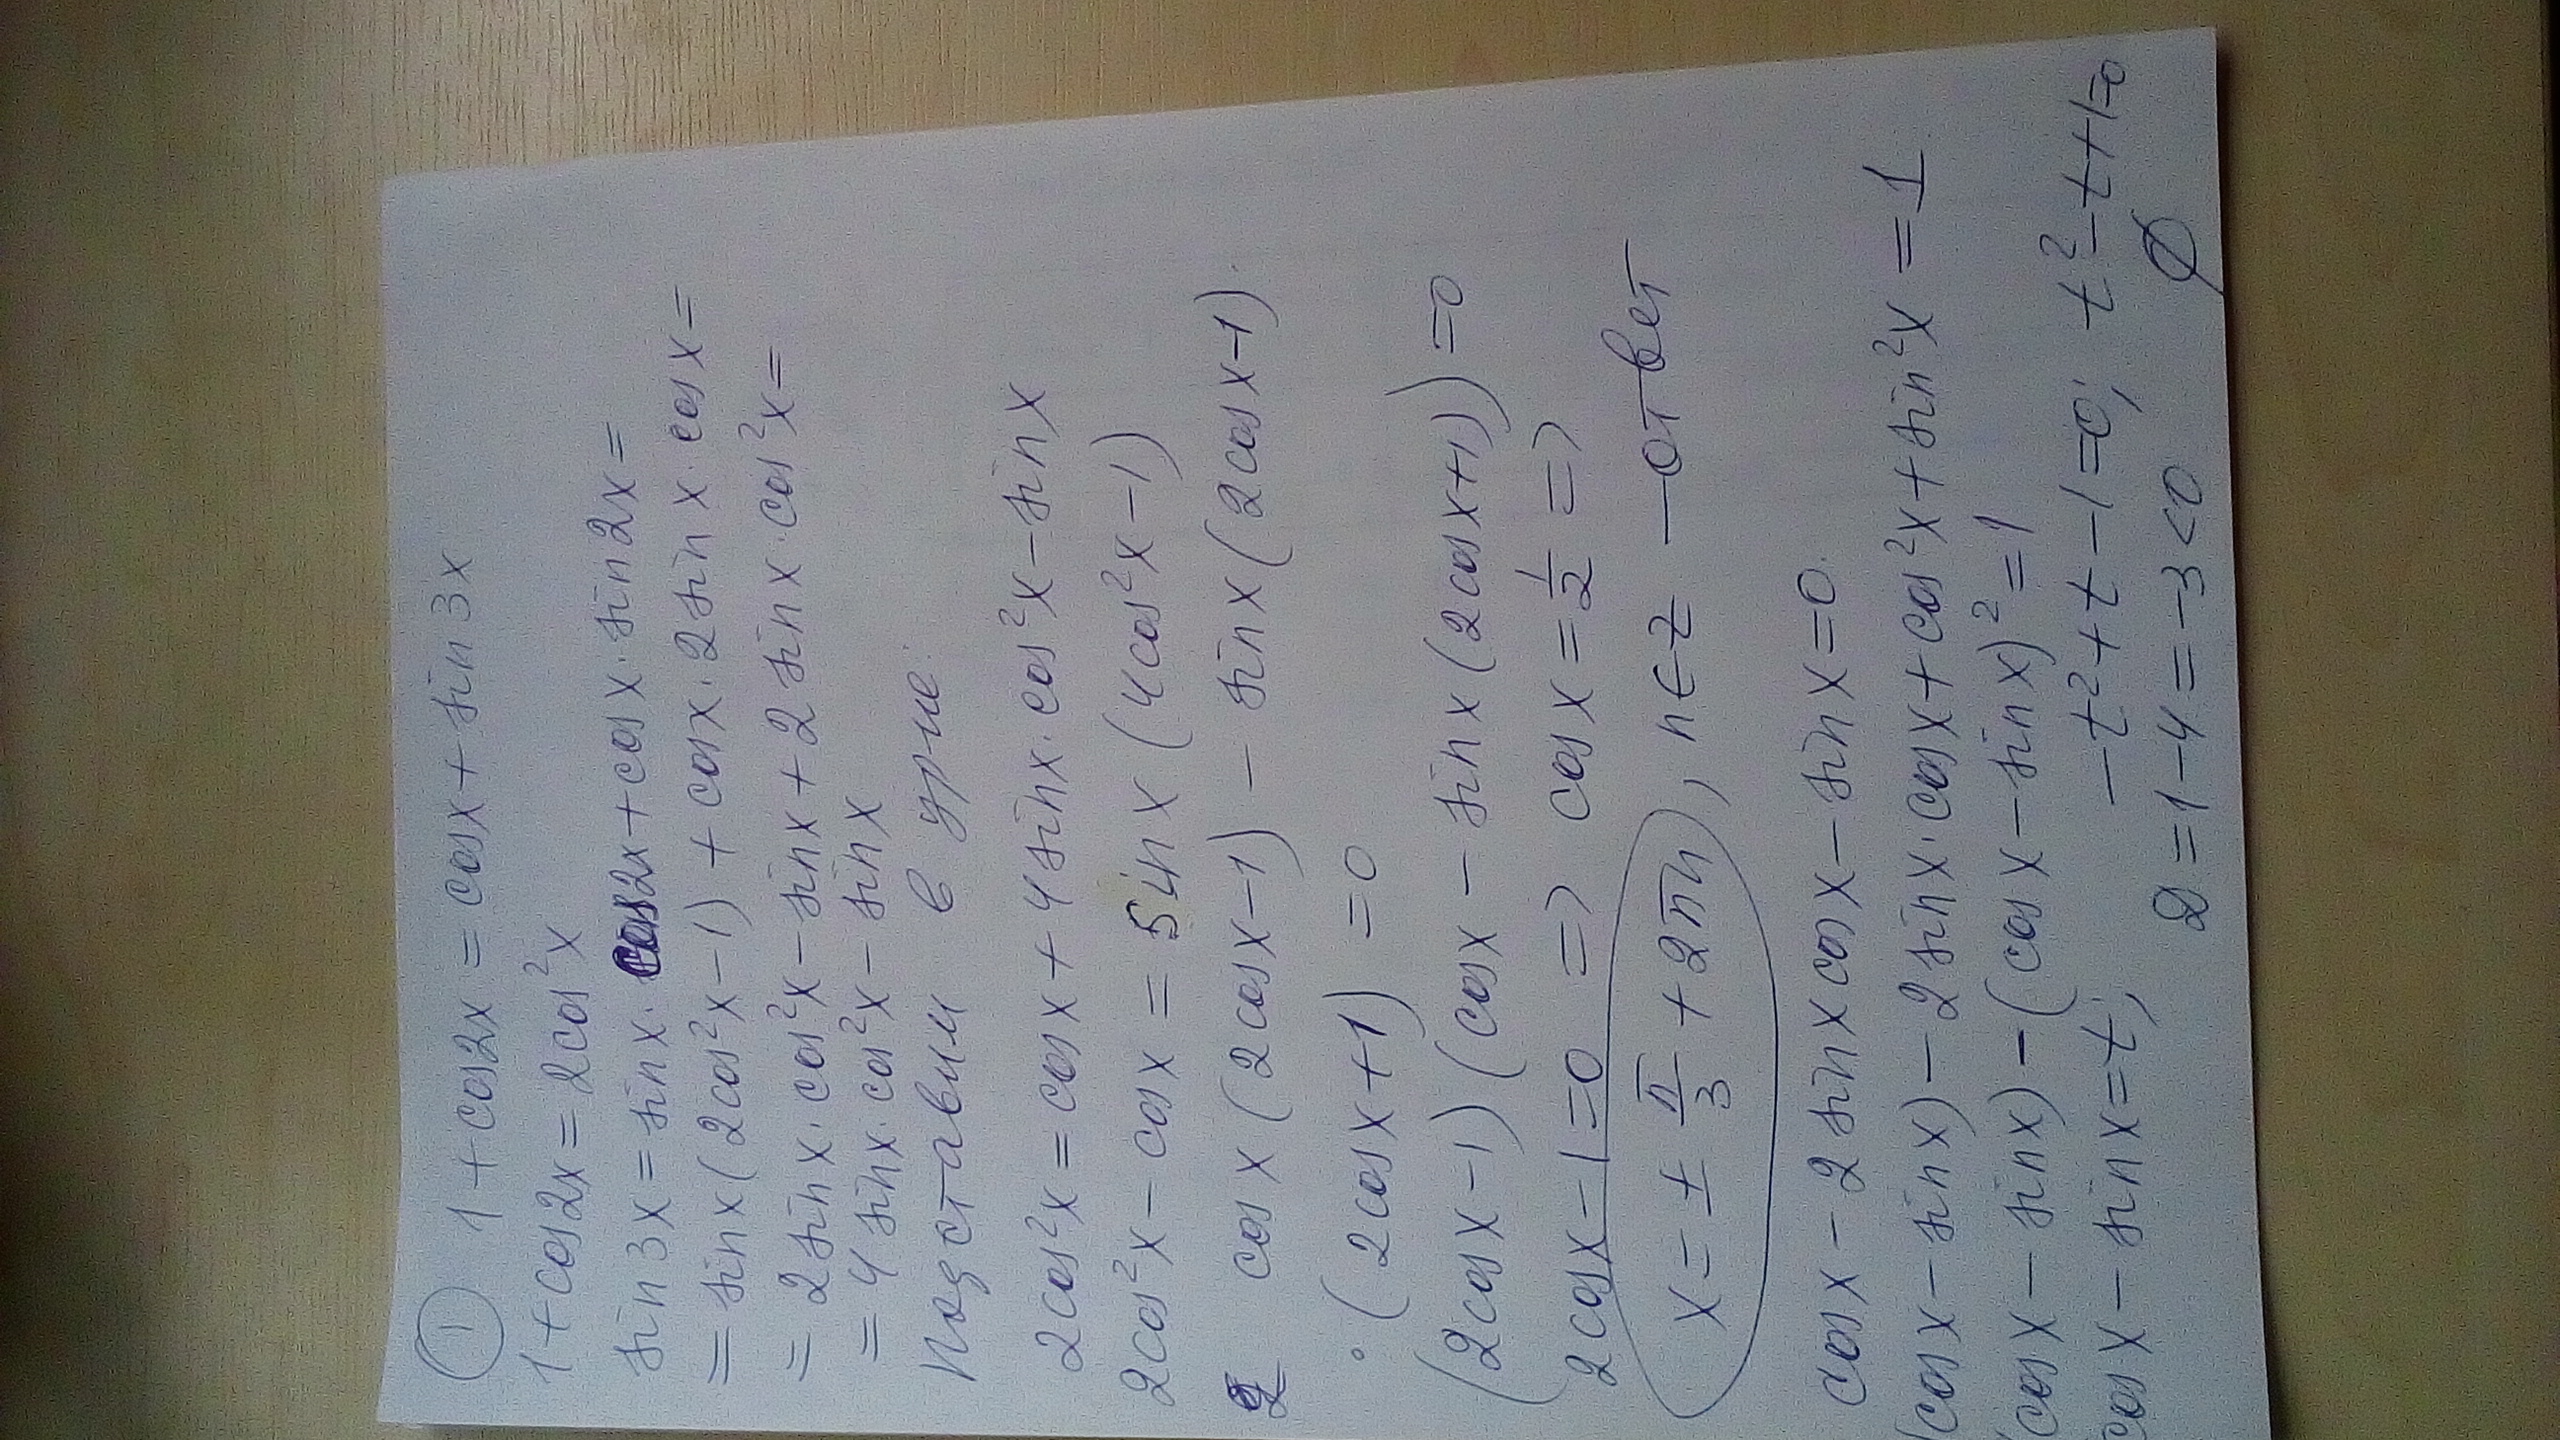 ① 1 + cos2x = cosx + sin 3x
1 + cos2x = 2cos²x
sin 3x = sin x · cos2x + cos x · sin 2x =
= sin x (2cos²x - 1) + cosx · 2 sin x · cosx =
= 2sinx · cos²x - sin x + 2 sin x · cos²x =
= 4 sinx · cos²x - sin x
Подставим в урне
2cos²x = cosx + 4 sinx · cos²x - sin x
2cos²x - cosx = sin x (4cos²x - 1)
cosx (2cosx - 1) - sin x (2cosx - 1) ·
· (2cosx + 1) = 0
(2cosx - 1) (cosx - sin x (2cosx + 1)) = 0
2cosx - 1 = 0 => cosx = 1/2 =>
x = ± π/3 + 2πn, n ∈ Z - ответ
cosx - 2 sin x cosx - sin x = 0.
(cosx - sin x) - 2 sin x · cosx + cos²x + sin²x = 1
(cosx - sin x) - (cosx - sin x)² = 1
cosx - sin x = t; - t² + t - 1 = 0; t² - t + 1 = 0
D = 1 - 4 = -3 < 0 ∅